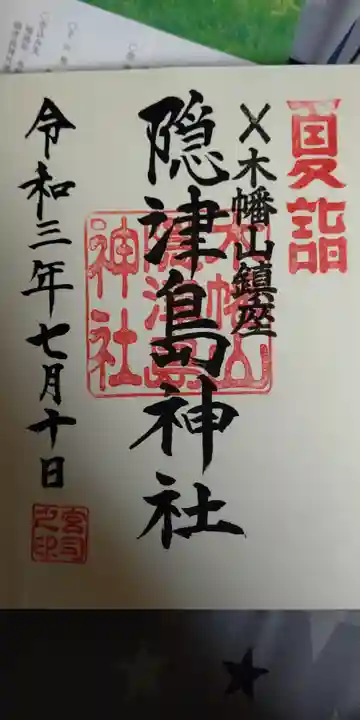 夏詣
〆木幡山鎮座
隠津島神社
木幡山
隠津島
神社
令和三年七月十日
宮司
之印